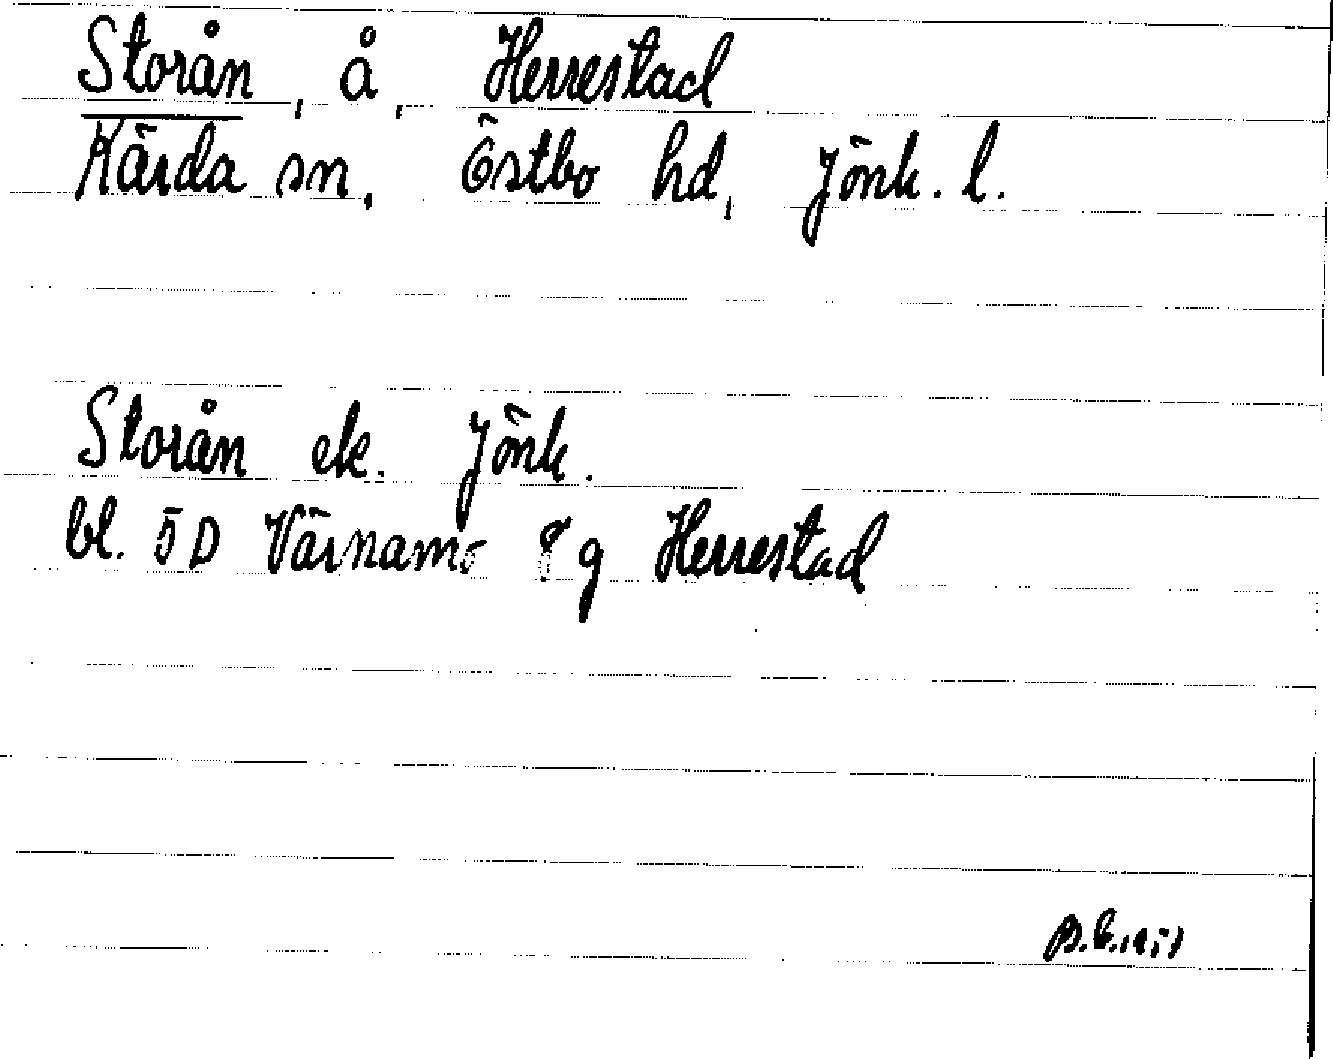 Storån, å, Herrestad
Kärda sn, Östbo hd, Jönk. l.
Storån ek. Jönk.
bl. 5 D Värnamo 8 g Herrestad